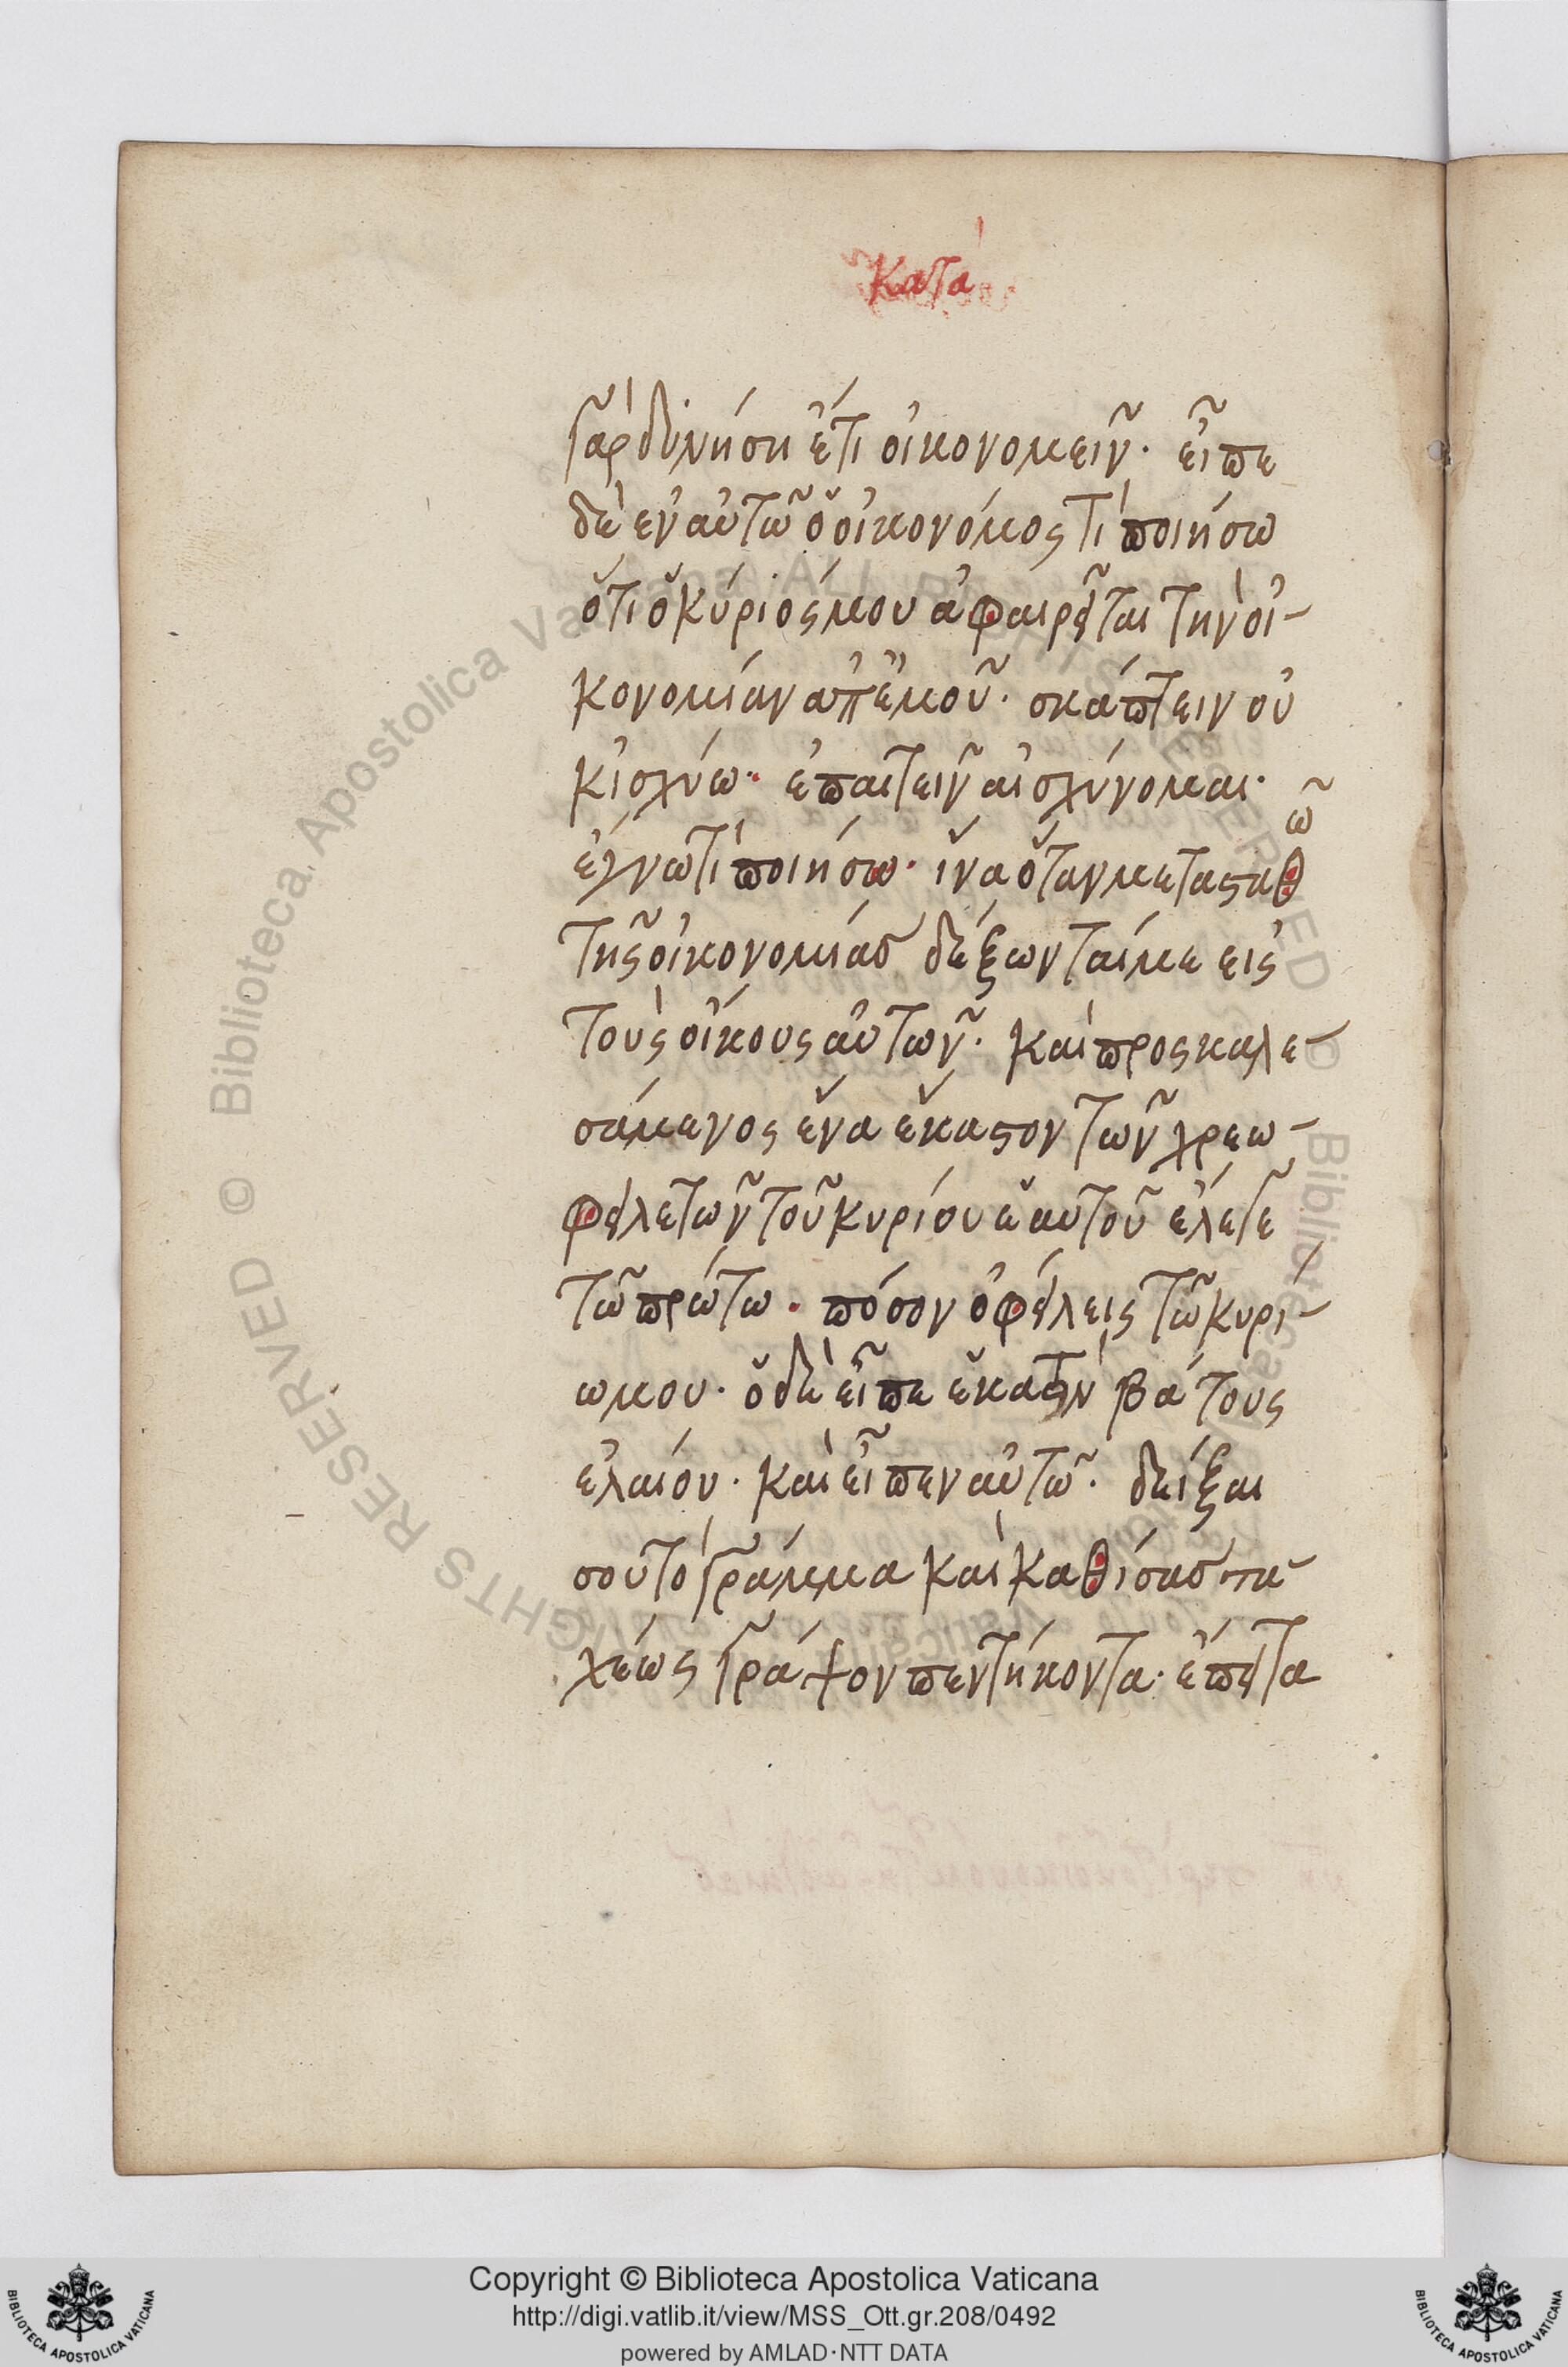 Κατὰ
γὰρ δυνήσῃ ἔτι οἰκονομεῖν. εἶπε
δὲ ἐν αὐτῶ ὁ οἰκονόμος τί ποιήσω
ὅτι ὁ κύριός μου ἀφαιρεῖται τὴν οἰ-
κονομίαν ἀπ' ἐμοῦ. σκάπτειν οὐ
κ ἰσχύω. ἐπαιτεῖν αἰσχύνομαι.
ἔγνω τὶ ποιήσω. ἵνα ὅταν μεταςαθῶ
τῆς οἰκονομίας δέξωνταί με εἰς
τοὺς οἴκους αὐτῶν. καὶ προςκαλε-
σάμενος ἕνα ἕκαςον τῶν χρεω-
φειλετῶν τοῦ κυρίου ἑαυτοῦ ἔλεγε
τῶ πρώτω. πόσον ὀφείλεις τῶ κυρί-
ω μου. ὁ δὲ εἶπε ἑκατὸν βάτους
ἐλαίου. καὶ εἶπεν αὐτῶ. δεῖξαι
σου τὸ γράμμα καὶ καθίσας τα
χέως γράψον πεντήκοντα. ἔπειτα
Copyright © Biblioteca Apostolica Vaticana
http://digi.vatlib.it/view/MSS_Ott.gr.208/0492
powered by AMLAD·NTT DATA
BIBLIOTECA APOSTOLICA VATICANA
BIBLIOTECA APOSTOLICA VATICANA